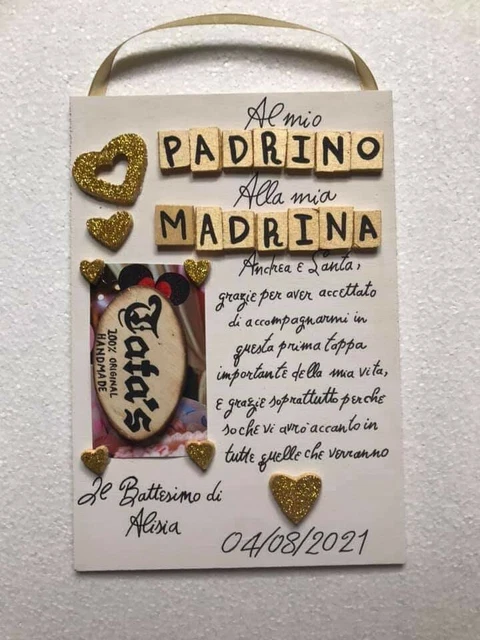 Al mio
PADRINO
Alla mia
MADRINA
Andrea e Santa,
grazie per aver accettato
di accompagnarmi in
questa prima tappa
importante della mia vita,
e grazie soprattutto perche
so che vi avrò accanto in
tutte quelle che verranno
Tata's
100% ORIGINAL
HANDMADE
Il Battesimo di
Alisia
04/08/2021